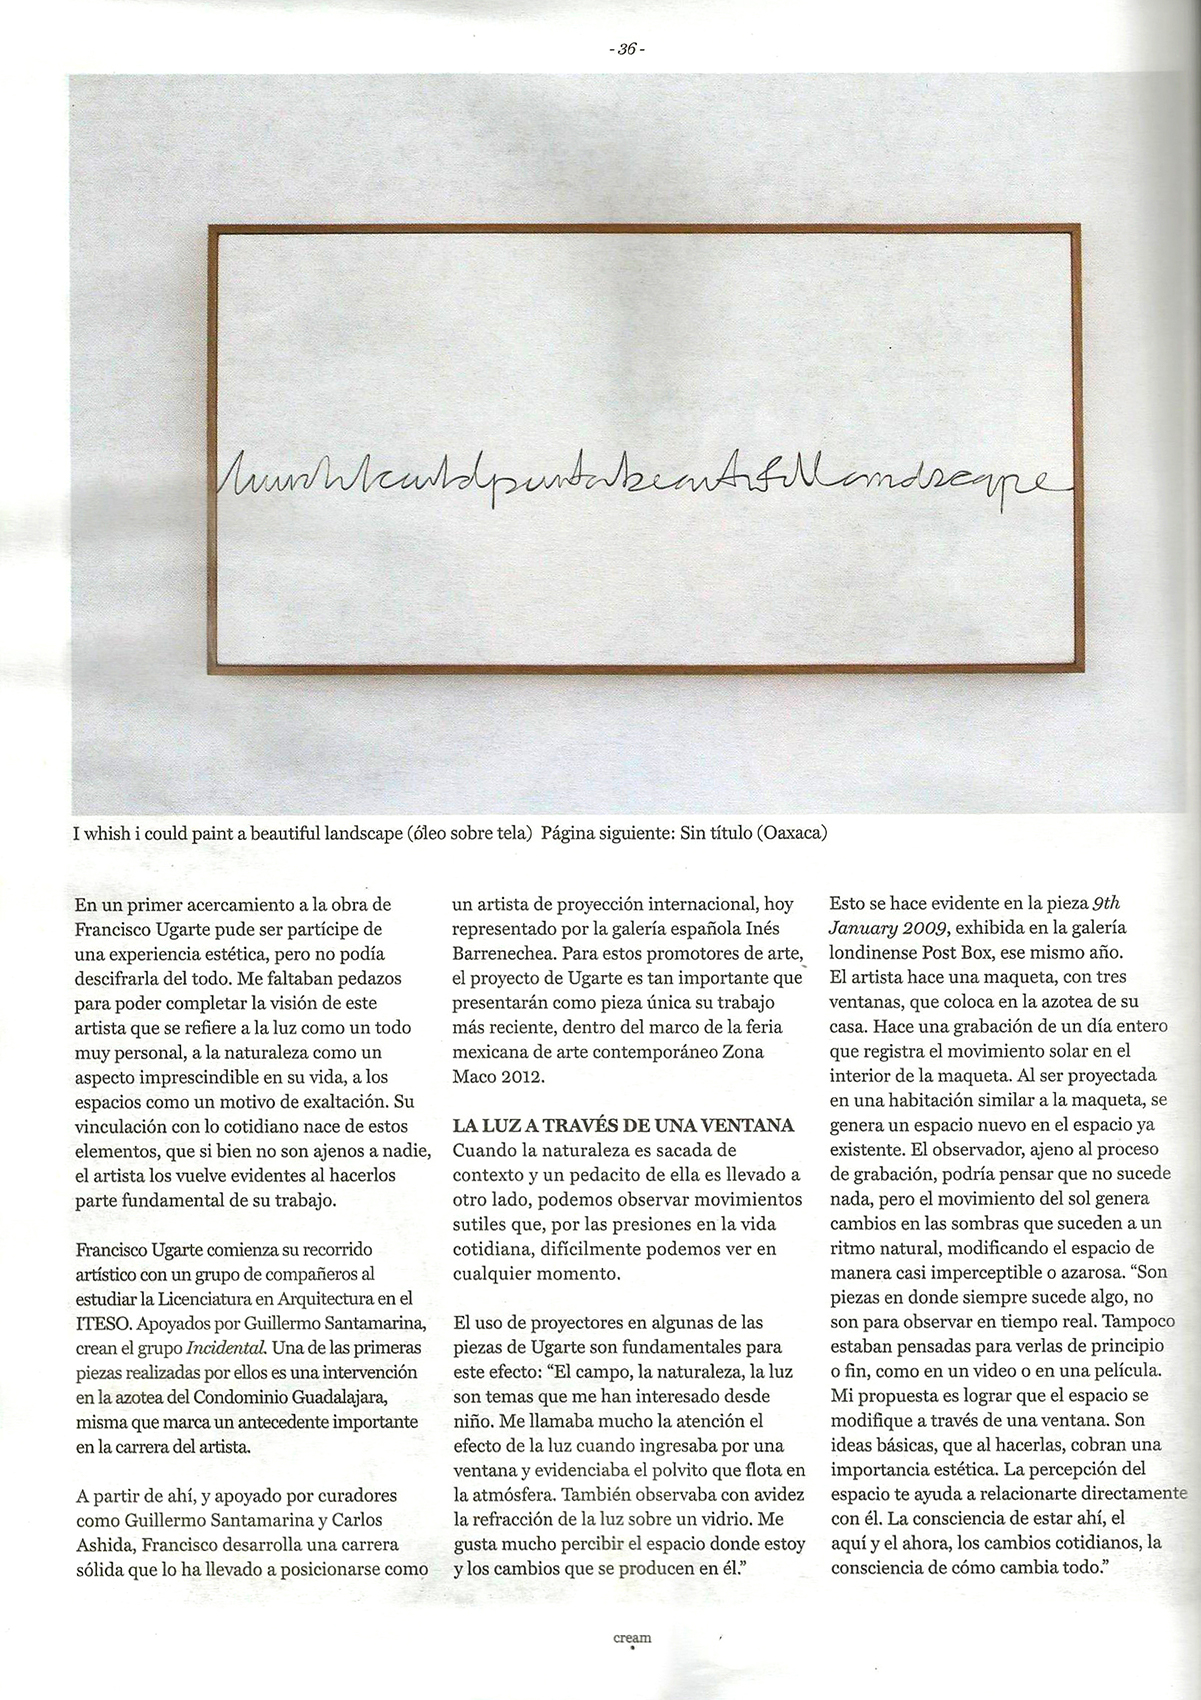 - 36 -
Iwishicouldpaintabeautifullandscape
I whish i could paint a beautiful landscape (óleo sobre tela)  Página siguiente: Sin título (Oaxaca)
En un primer acercamiento a la obra de
Francisco Ugarte pude ser partícipe de
una experiencia estética, pero no podía
descifrarla del todo. Me faltaban pedazos
para poder completar la visión de este
artista que se refiere a la luz como un todo
muy personal, a la naturaleza como un
aspecto imprescindible en su vida, a los
espacios como un motivo de exaltación. Su
vinculación con lo cotidiano nace de estos
elementos, que si bien no son ajenos a nadie,
el artista los vuelve evidentes al hacerlos
parte fundamental de su trabajo.
Francisco Ugarte comienza su recorrido
artístico con un grupo de compañeros al
estudiar la Licenciatura en Arquitectura en el
ITESO. Apoyados por Guillermo Santamarina,
crean el grupo Incidental. Una de las primeras
piezas realizadas por ellos es una intervención
en la azotea del Condominio Guadalajara,
misma que marca un antecedente importante
en la carrera del artista.
A partir de ahí, y apoyado por curadores
como Guillermo Santamarina y Carlos
Ashida, Francisco desarrolla una carrera
sólida que lo ha llevado a posicionarse como
un artista de proyección internacional, hoy
representado por la galería española Inés
Barrenechea. Para estos promotores de arte,
el proyecto de Ugarte es tan importante que
presentarán como pieza única su trabajo
más reciente, dentro del marco de la feria
mexicana de arte contemporáneo Zona
Maco 2012.
LA LUZ A TRAVÉS DE UNA VENTANA
Cuando la naturaleza es sacada de
contexto y un pedacito de ella es llevado a
otro lado, podemos observar movimientos
sutiles que, por las presiones en la vida
cotidiana, difícilmente podemos ver en
cualquier momento.
El uso de proyectores en algunas de las
piezas de Ugarte son fundamentales para
este efecto: “El campo, la naturaleza, la luz
son temas que me han interesado desde
niño. Me llamaba mucho la atención el
efecto de la luz cuando ingresaba por una
ventana y evidenciaba el polvito que flota en
la atmósfera. También observaba con avidez
la refracción de la luz sobre un vidrio. Me
gusta mucho percibir el espacio donde estoy
y los cambios que se producen en él.”
Esto se hace evidente en la pieza 9th
January 2009, exhibida en la galería
londinense Post Box, ese mismo año.
El artista hace una maqueta, con tres
ventanas, que coloca en la azotea de su
casa. Hace una grabación de un día entero
que registra el movimiento solar en el
interior de la maqueta. Al ser proyectada
en una habitación similar a la maqueta, se
genera un espacio nuevo en el espacio ya
existente. El observador, ajeno al proceso
de grabación, podría pensar que no sucede
nada, pero el movimiento del sol genera
cambios en las sombras que suceden a un
ritmo natural, modificando el espacio de
manera casi imperceptible o azarosa. “Son
piezas en donde siempre sucede algo, no
son para observar en tiempo real. Tampoco
estaban pensadas para verlas de principio
o fin, como en un video o en una película.
Mi propuesta es lograr que el espacio se
modifique a través de una ventana. Son
ideas básicas, que al hacerlas, cobran una
importancia estética. La percepción del
espacio te ayuda a relacionarte directamente
con él. La consciencia de estar ahí, el
aquí y el ahora, los cambios cotidianos, la
consciencia de cómo cambia todo.”
cream